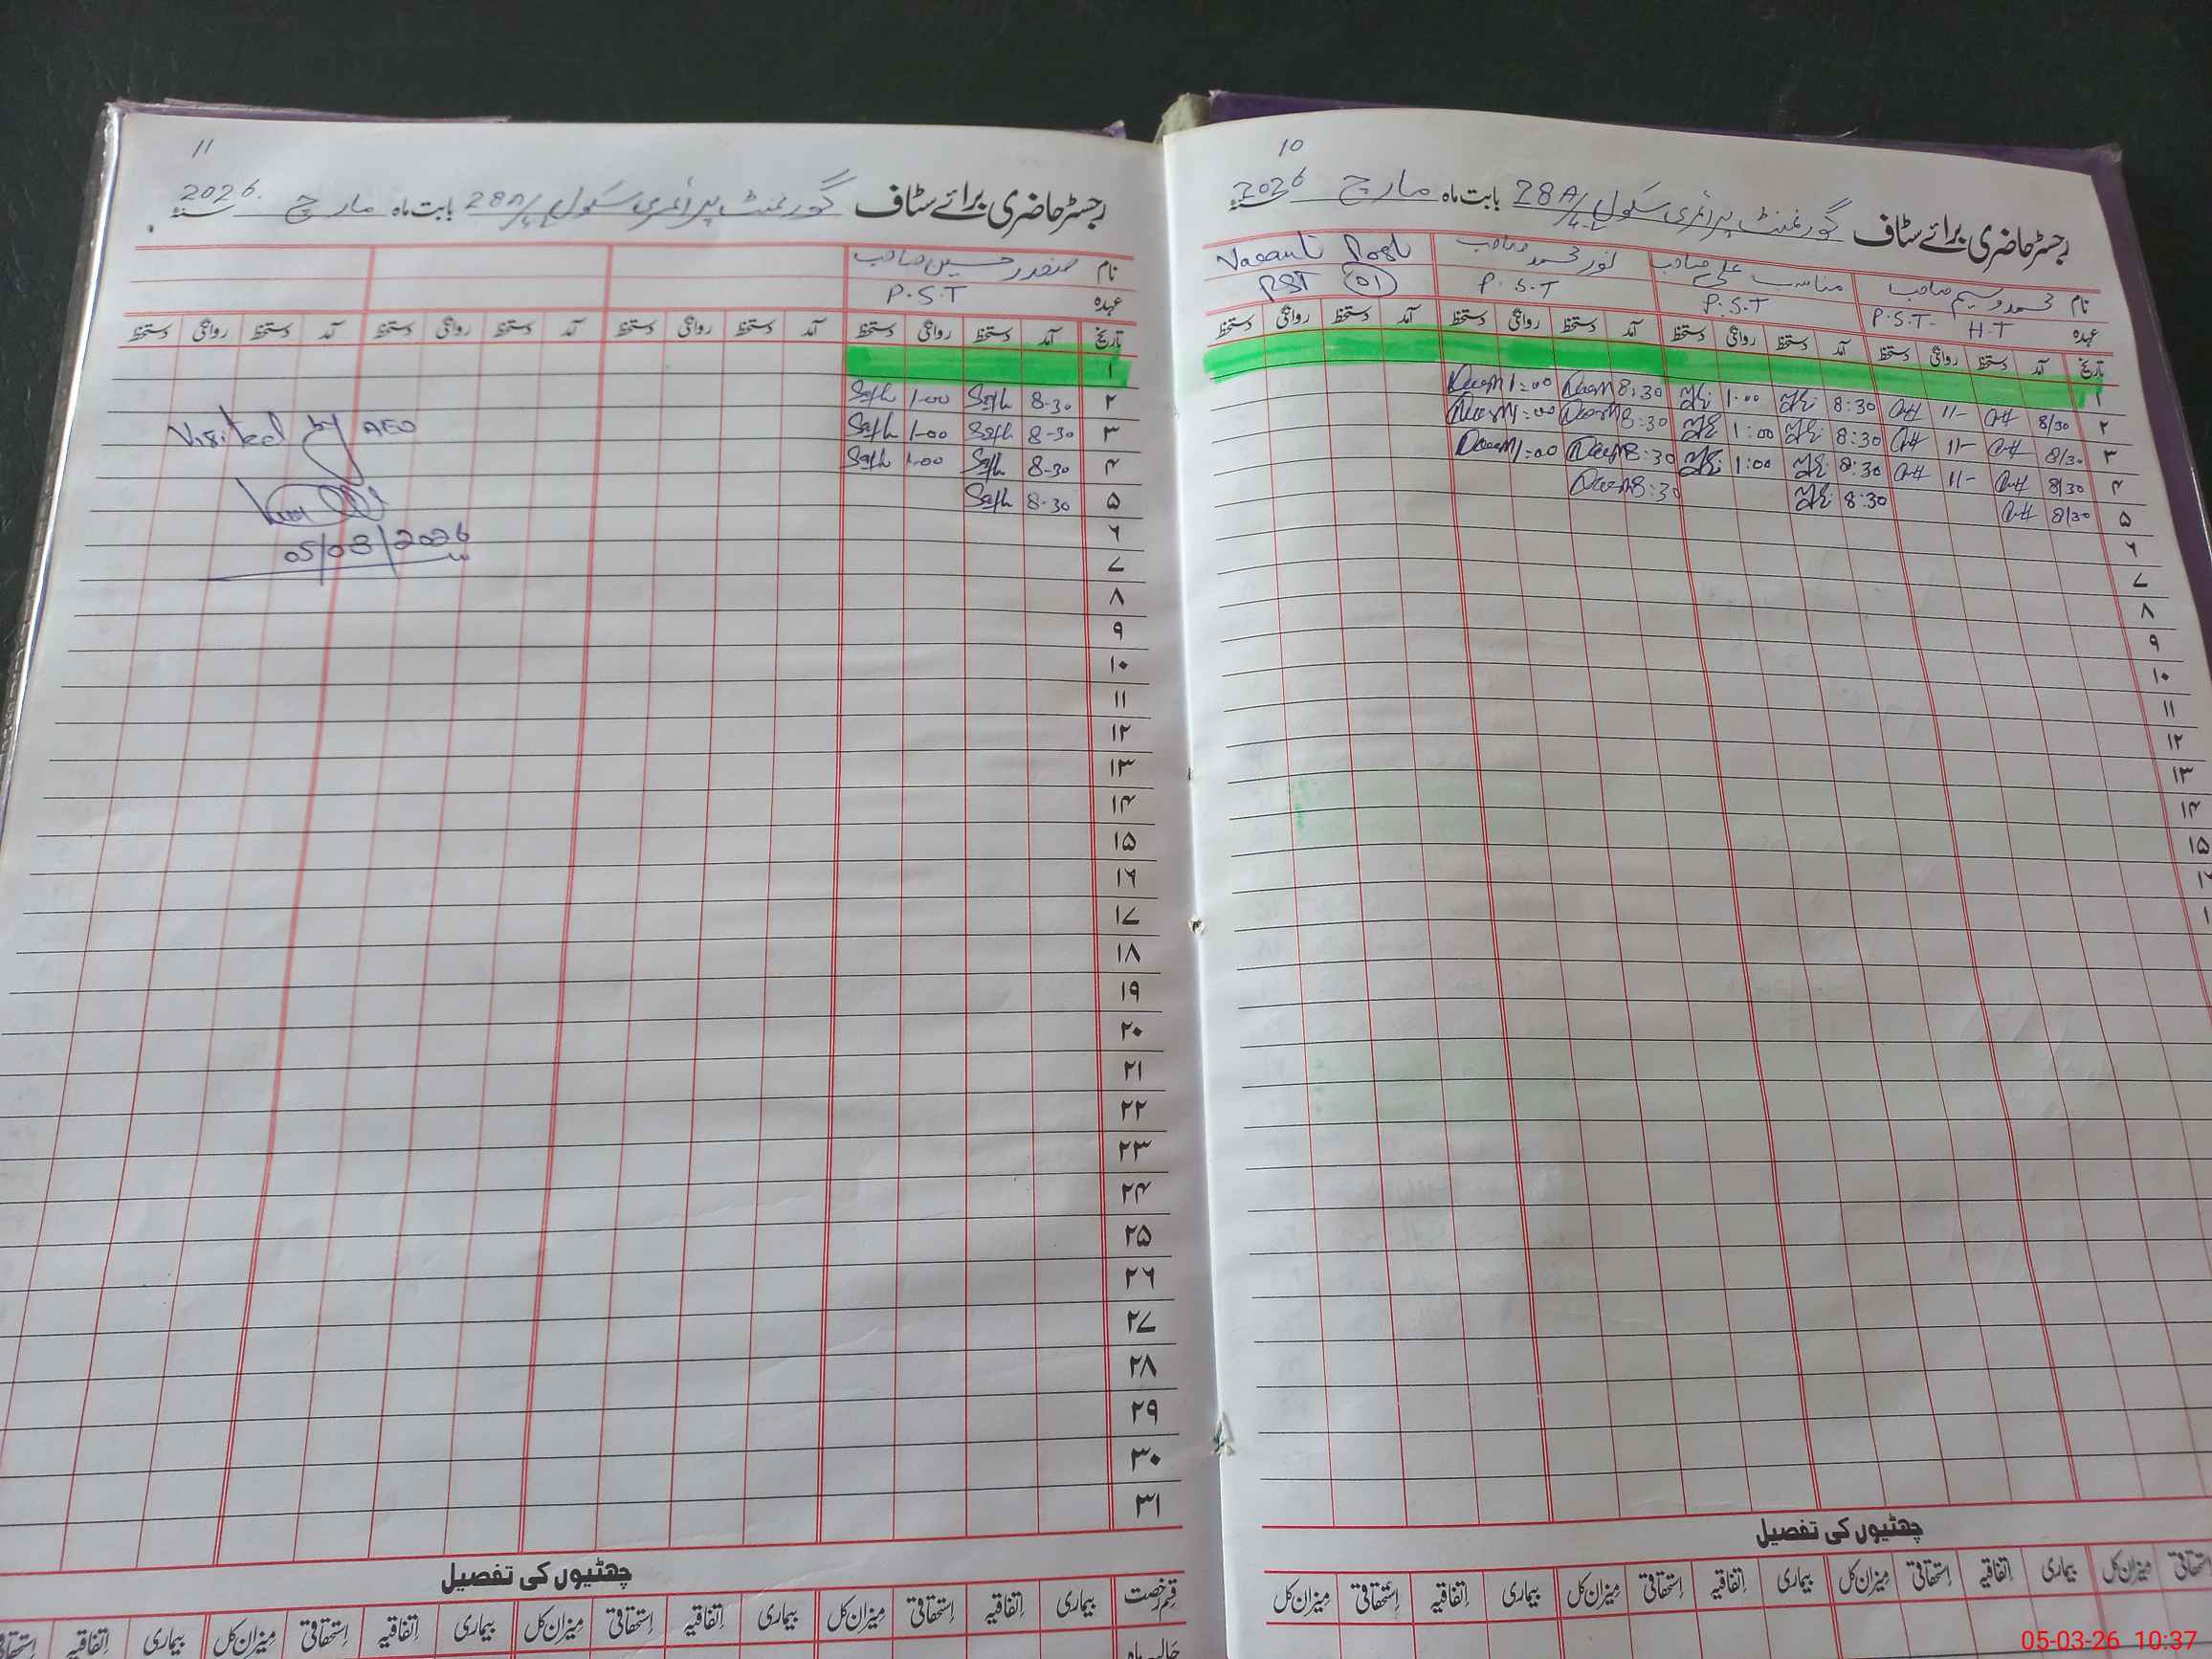 10
رجسٹر حاضری برائے سٹاف گورنمنٹ پرائمری سکول 28A/4-L بابت ماہ مارچ 2026 سنہ
نام محمد وسیم صاحب مناسب علی صاحب انور محمد صاحب Vacant Post
عہدہ P.S.T- H.T P.S.T P.S.T PST 01
تاریخ آمد دستخط روانگی دستخط آمد دستخط روانگی دستخط آمد دستخط روانگی دستخط آمد دستخط روانگی دستخط
۱
۲ 8/30 11- 8:30 1:00 8:30 1:00
۳ 8/30 11- 8:30 1:00 8:30 1:00
۴ 8/30 11- 8:30 1:00 8:30 1:00
۵ 8/30 8:30 8:30
۶
۷
۸
۹
۱۰
۱۱
۱۲
۱۳
۱۴
۱۵
چھٹیوں کی تفصیل
استحقاقی میزان کل بیماری اتفاقیہ استحقاقی میزان کل بیماری اتفاقیہ استحقاقی میزان کل بیماری اتفاقیہ استحقاقی میزان کل
11
رجسٹر حاضری برائے سٹاف گورنمنٹ پرائمری سکول 28A/4-L بابت ماہ مارچ 2026. سنہ
نام صفدر حسین صاحب
عہدہ P.S.T
تاریخ آمد دستخط روانگی دستخط آمد دستخط روانگی دستخط آمد دستخط روانگی دستخط آمد دستخط روانگی دستخط
۱
۲ 8-30 1-00
۳ 8-30 1-00
۴ 8-30 1-00
۵ 8-30
۶
۷
۸
۹
۱۰
۱۱
۱۲
۱۳
۱۴
۱۵
۱۶
۱۷
۱۸
۱۹
۲۰
۲۱
۲۲
۲۳
۲۴
۲۵
۲۶
۲۷
۲۸
۲۹
۳۰
۳۱
Visited by AEO
05/03/2026
چھٹیوں کی تفصیل
قسم رخصت بیماری اتفاقیہ استحقاقی میزان کل بیماری اتفاقیہ استحقاقی میزان کل بیماری اتفاقیہ استحقاقی میزان کل بیماری اتفاقیہ استحقاقی
حالیہ ماہ
05-03-26 10:37